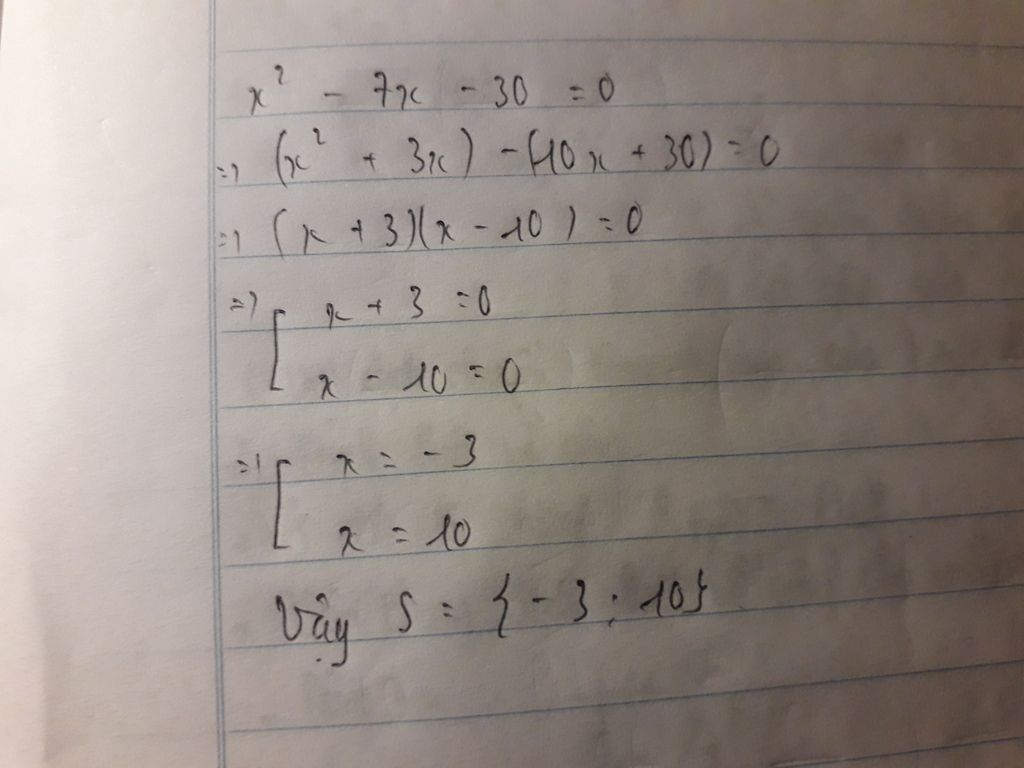 x² - 7x - 30 = 0
=> (x² + 3x) - (10x + 30) = 0
=> (x + 3)(x - 10) = 0
=> [ x + 3 = 0
x - 10 = 0
=> [ x = -3
x = 10
Vậy S = {-3; 10}